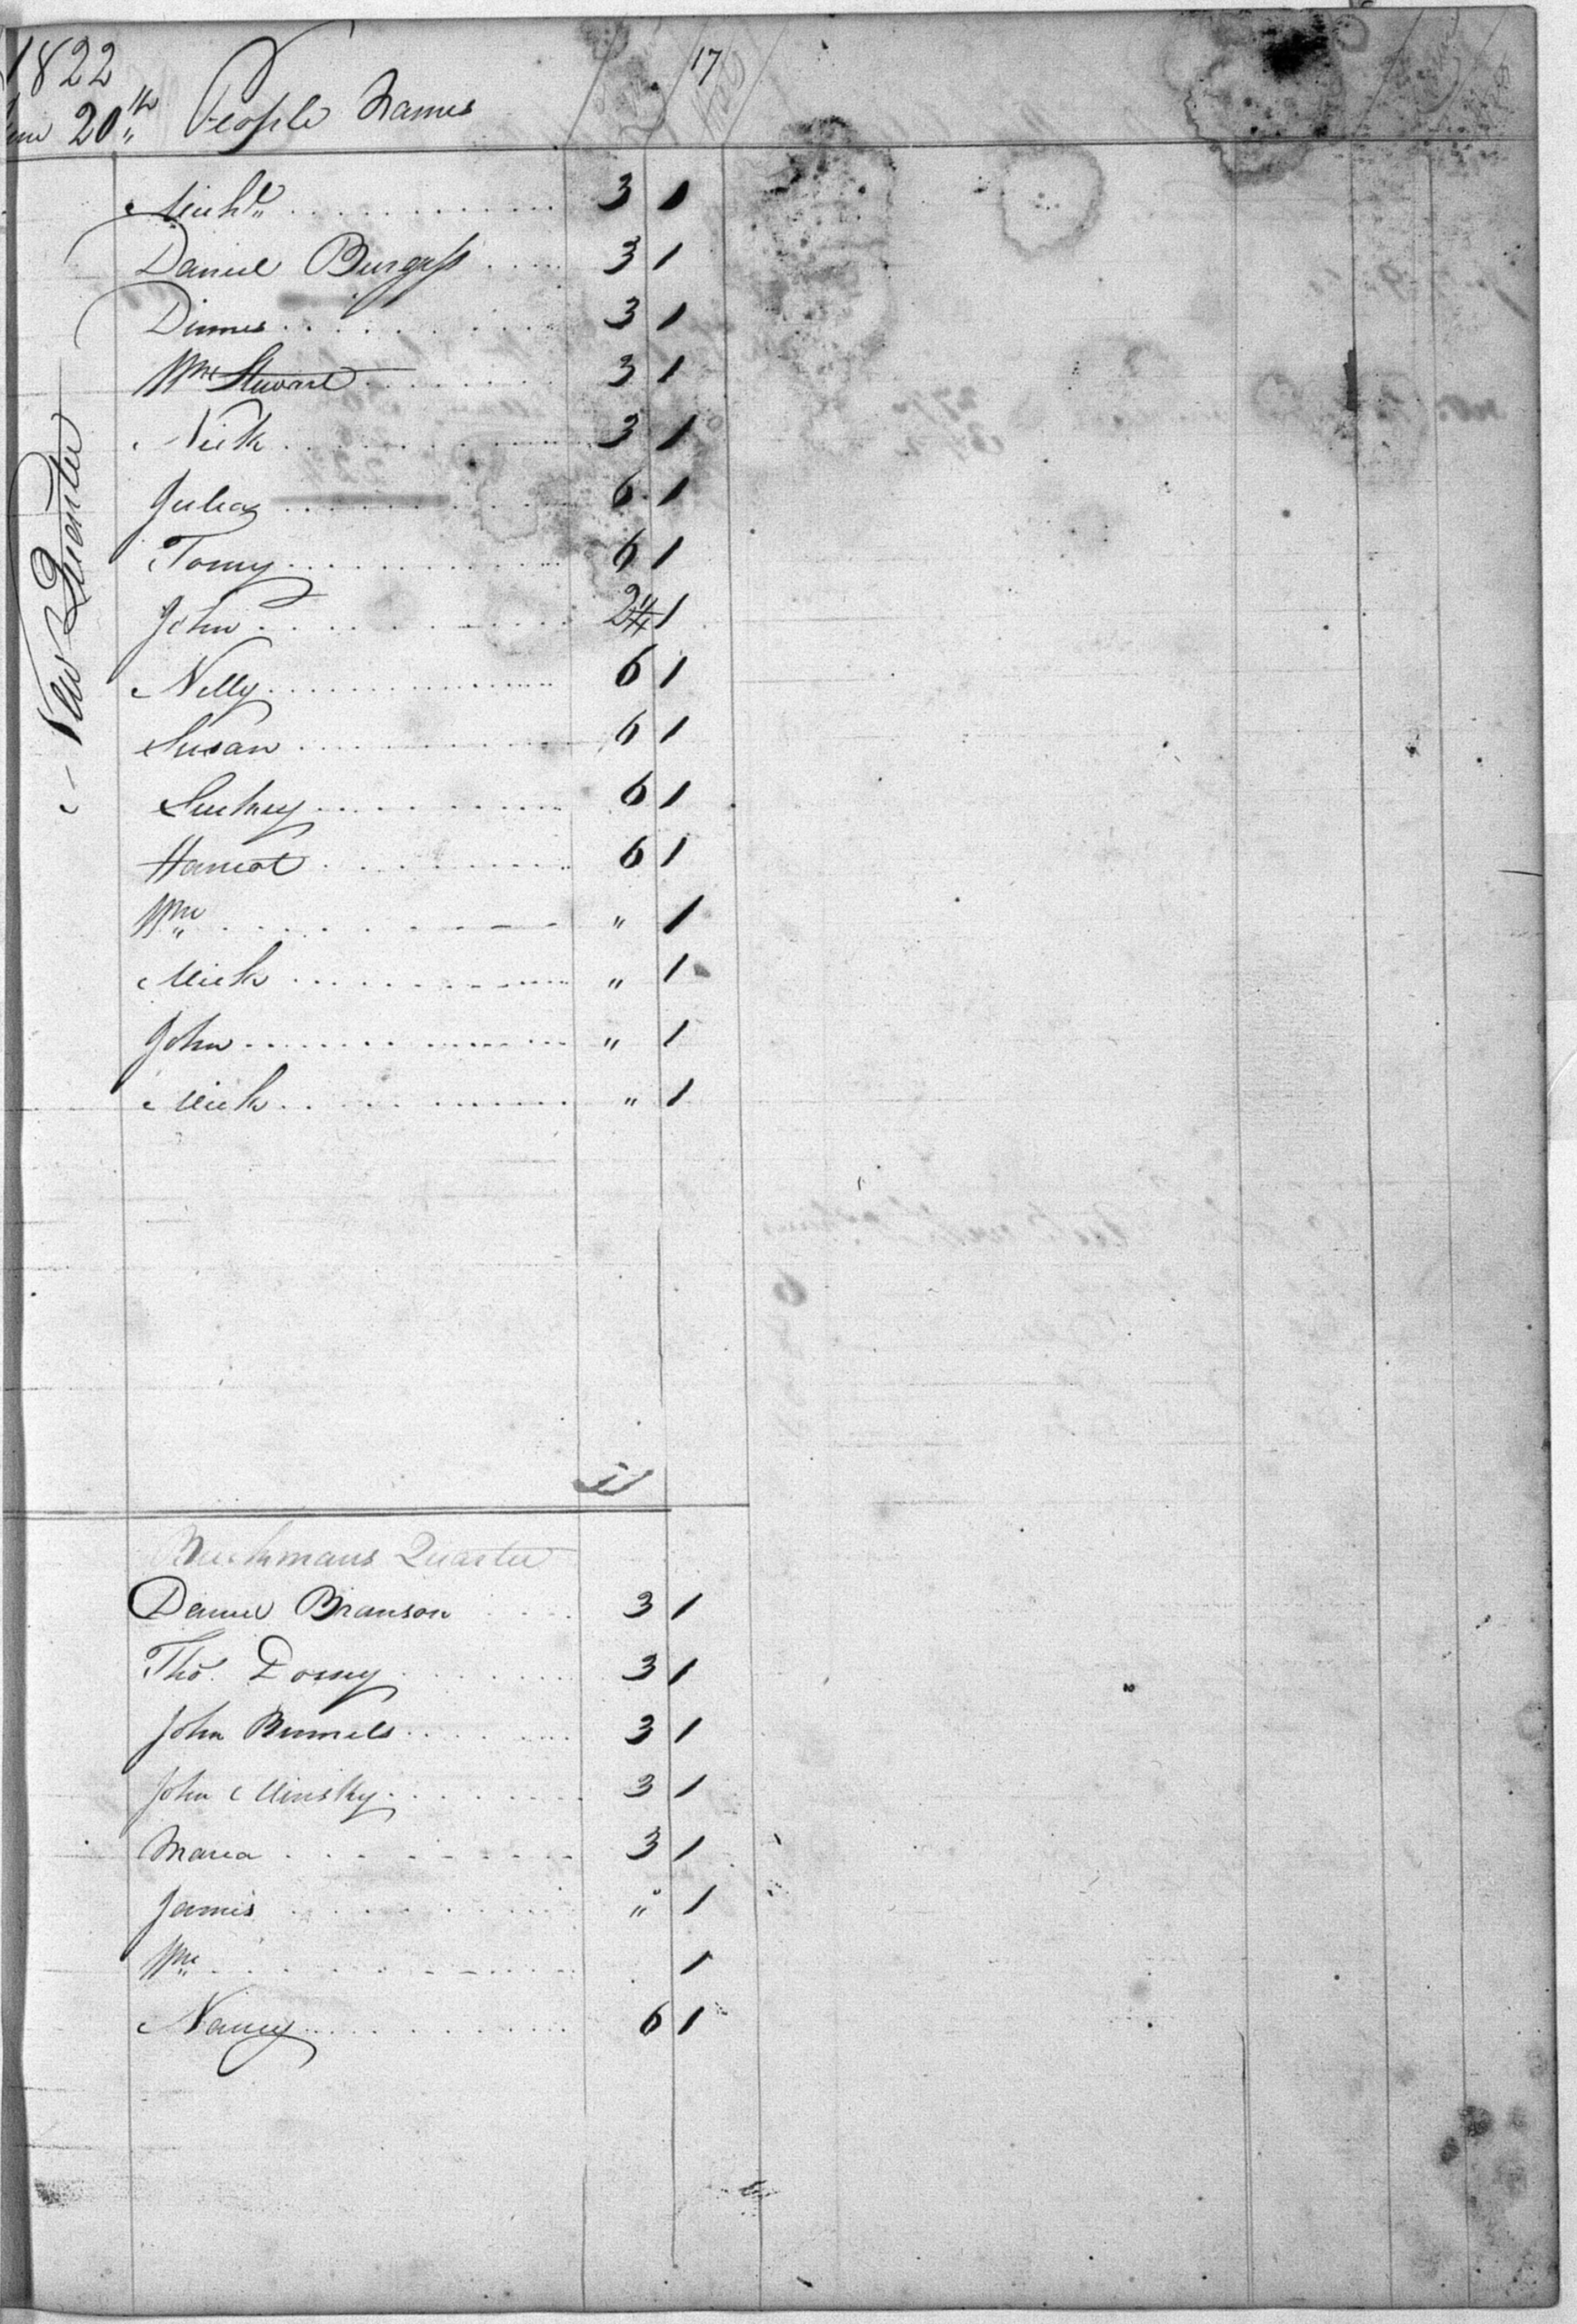 1822
17
20th People Names
New Quarter
Michl 3 1
Daniel Burgess 3 1
Dinnes 3 1
Wm Stuwart 3 1
Nick 3 1
Julia 6 1
Tomy 6 1
John 2 1
Nelly 6 1
Susan 6 1
Suckey 6 1
Harriot 6 1
Wm " 1
Mick " 1
John " 1
Mick " 1
Quarter
Daniel Branson 3 1
Tho. Dorsey 3 1
John 3 1
John Minsky 3 1
Maria 3 1
James " 1
Wm 1
Nancy 6 1